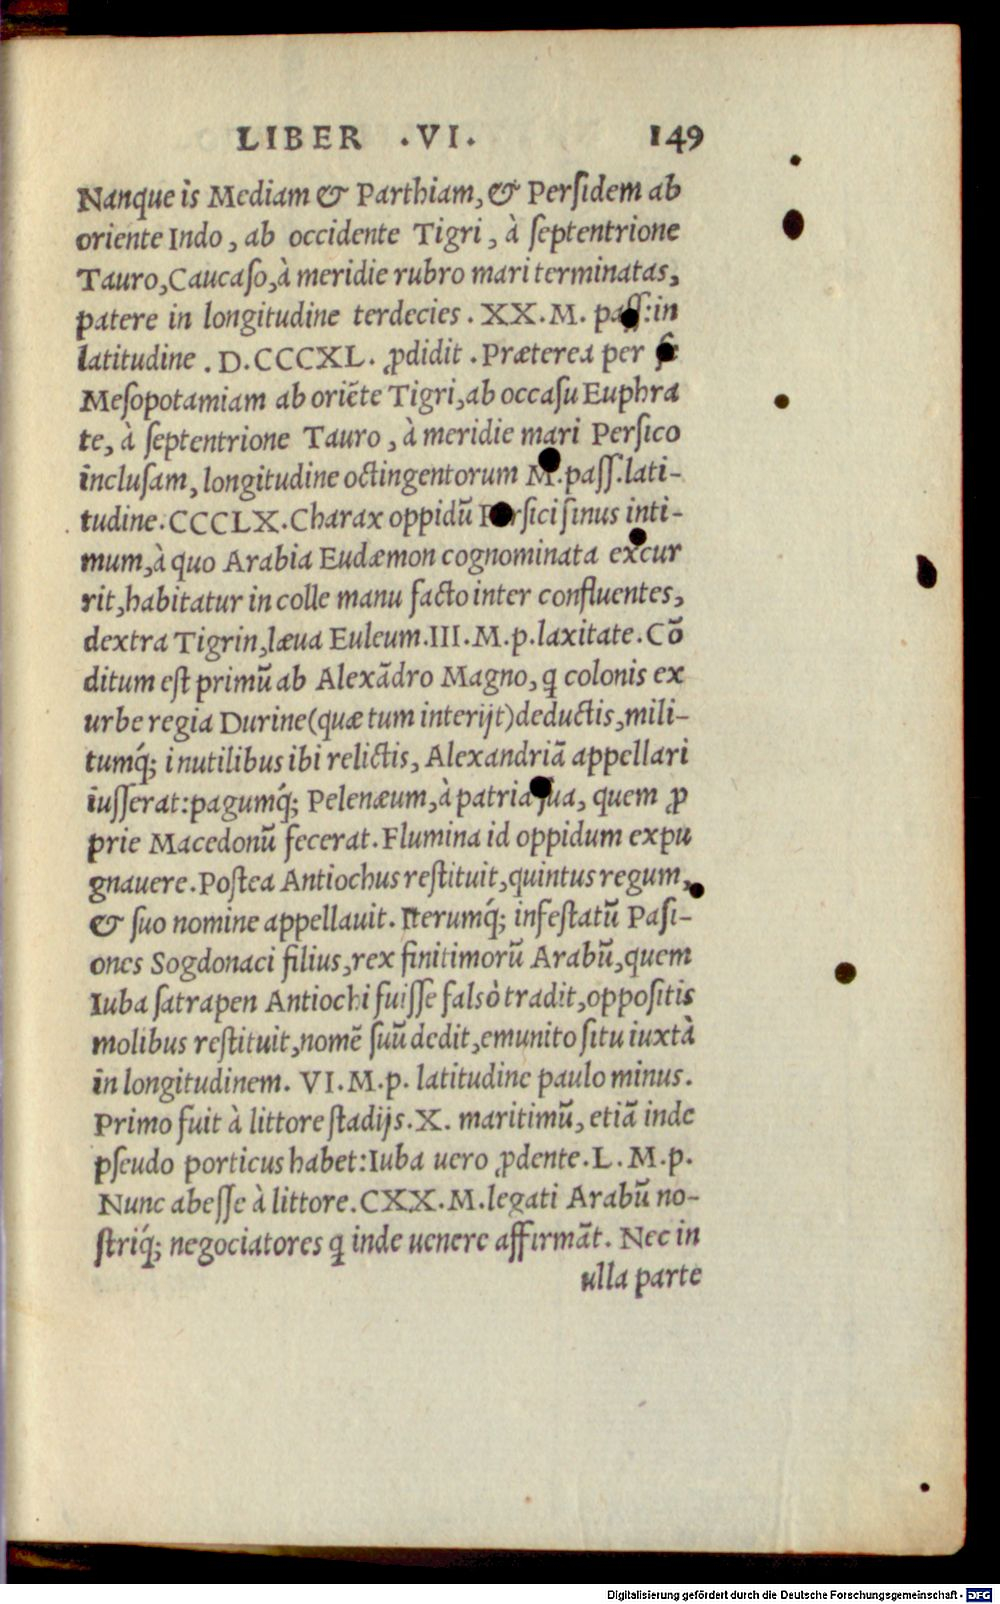 LIBER .VI. 149
Nanque is Mediam & Parthiam, & Persidem ab
oriente Indo, ab occidente Tigri, à septentrione
Tauro, Caucaso, à meridie rubro mari terminatas,
patere in longitudine terdecies. XX. M. pass: in
latitudine. D. CCCXL. ꝓdidit. Præterea per se
Mesopotamiam ab oriēte Tigri, ab occasu Euphra
te, à septentrione Tauro, à meridie mari Persico
inclusam, longitudine octingentorum M. pass. lati-
tudine. CCCLX. Charax oppidū Persici sinus inti-
mum, à quo Arabia Eudæmon cognominata excur
rit, habitatur in colle manu facto inter confluentes,
dextra Tigrin, læua Euleum. III. M. p. laxitate. Cō
ditum est primū ab Alexādro Magno, ꝗ colonis ex
urbe regia Durine (quæ tum interijt) deductis, mili-
tumq́; inutilibus ibi relictis, Alexandriā appellari
iusserat: pagumq́; Pelenæum, à patria sua, quem ꝓ
prie Macedonū fecerat. Flumina id oppidum expu
gnauere. Postea Antiochus restituit, quintus regum,
& suo nomine appellauit. Iterumq́; infestatū Pasi-
ones Sogdonaci filius, rex finitimorū Arabū, quem
Iuba satrapen Antiochi fuisse falsò tradit, oppositis
molibus restituit, nomē suū dedit, emunito situ iuxtà
in longitudinem. VI. M. p. latitudine paulo minus.
Primo fuit à littore stadijs. X. maritimū, etiā inde
pseudo porticus habet: Iuba uero ꝓdente. L. M. p.
Nunc abesse à littore. CXX. M. legati Arabū no-
striq́; negociatores ꝗ inde uenere affirmāt. Nec in
ulla parte
Digitalisierung gefördert durch die Deutsche Forschungsgemeinschaft - DFG